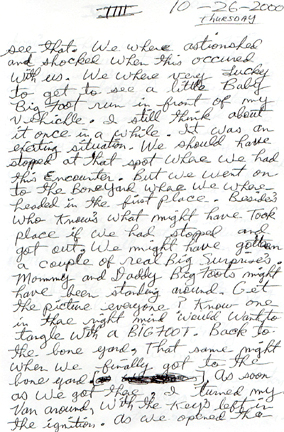 IIII
10-26-2000
THURSDAY
see that. We where astionshed
and shocked when this occured
with us. We where very lucky
to get to see a little Baby
Big foot run in front of my
Vehickle. I still think about
it once in a while. It was an
exerting situation. We should have
stopped at that spot where we had
this Encounter. But we went on
to the Boneyard where we where
headed in the first place. Besides
Who Knows what might have Took
place if we had stopped and
got out, We might have gotten
a couple of real Big Surprises.
Mommy and Daddy Bigfoots might
have been standing around. Get
the picture everyone? Know one
in thae right mind would want to
tangle with a BIGFOOT. Back to
the bone yard, That same night
when we finally got to the
bone yard. As soon
as we got there, I turned my
Van around, With the Keys left in
the ignition. As we opened the